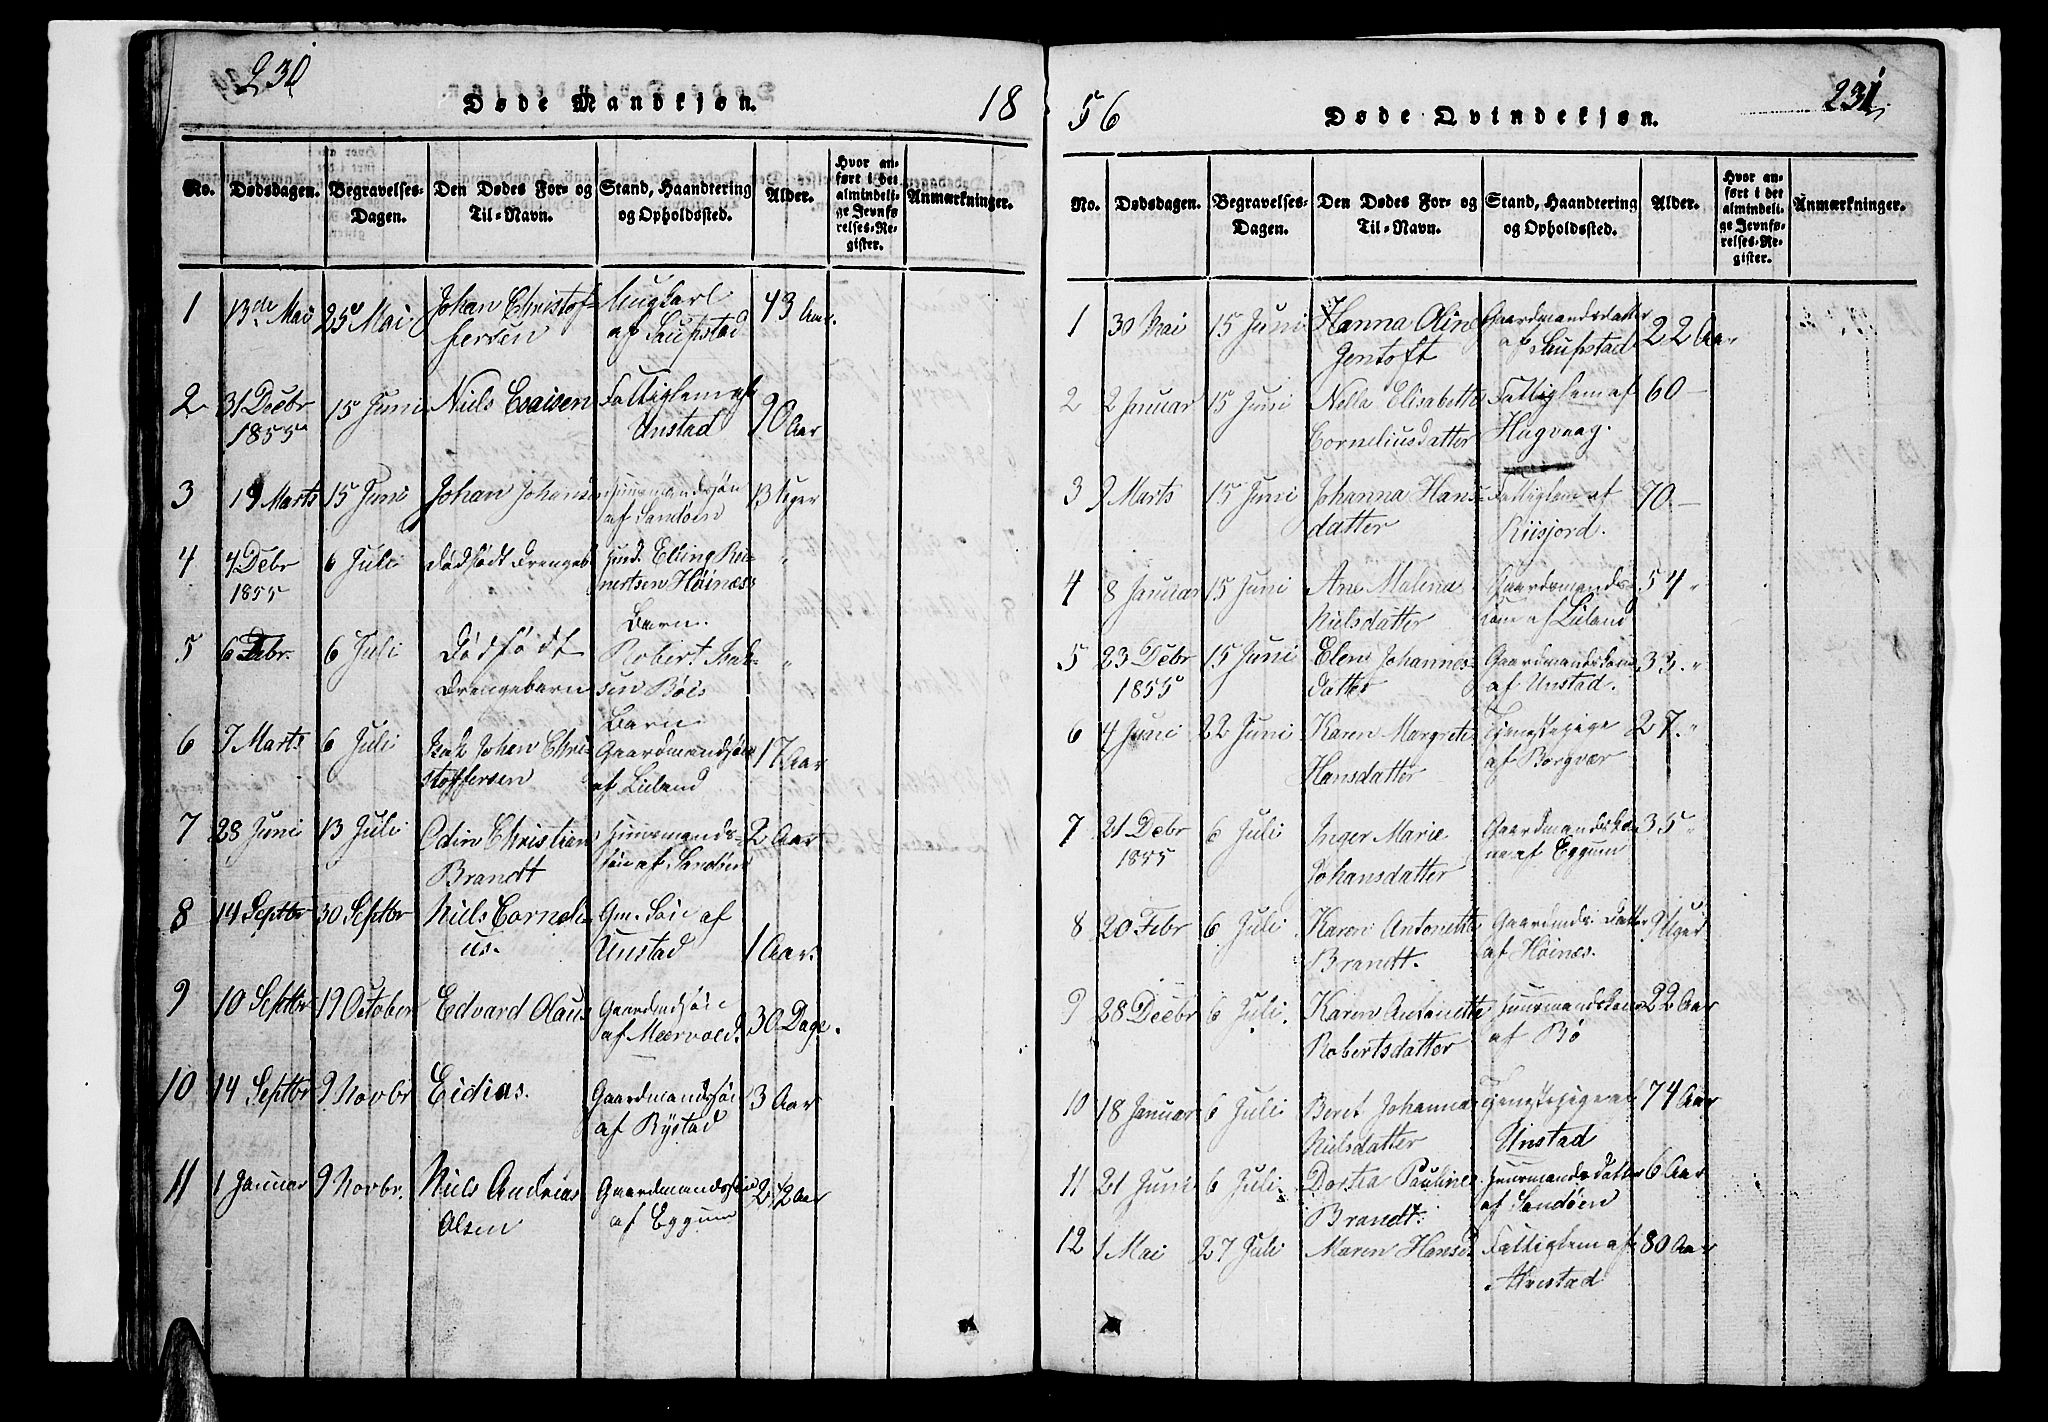 230
Døde Mandkjøn.
18
No.
Dødsdagen.
Begravelses-
Dagen.
Den Dødes For- og
Til-Navn.
Stand, Haandtering
og Opholdssted.
Alder.
Hvor an-
ført i det
almindeli-
ge Jevnfø
relses-Re-
gister.
Anmærkninger.
1 13de Mai 25 Mai Johan Christof-
fersen
af Saupstad
43 Aar.
2 31 Decbr
1855
15 Juni Niels Esaisen Fattiglem af
Unstad
90 Aar
3 19 Marts 15 Juni Johan Johans
af Sandøen
13 Uger
4 4 Debr
1855
6 Juli Dødfødt Drengeb. Huusd. Elling Rei-
nertsen Høinæs
Barn.
"
5 6 Febr. 6 Juli Dødfødt
Drengebarn
Robert Isak-
sen Bøes
Barn.
"
6 7 Marts 6 Juli Isak Johan Chri-
stoffersen
Gaardmandssøn
af Liland
17 Aar
7 28 Juni 13 Juli Odin Christian
Brandt
Huusmands-
søn af Sandøen
2 Aar
8 14 Septbr 30 Septbr Niels Corneli-
us.
Gm. Søn af
Unstad
1 Aar.
9 10 Septbr 19 October Edvard Olaus Gaardmdsøn
af Mærvold.
30 Dage.
10 14 Septbr 9 Novbr Eidias.
Gaardmandssøn
af Rystad
3 Aar
11 1 Januar 9 Novbr. Niels Andreas
Olsen
Gaardmandssøn
af Eggum
2 1/2 Aar
56
Døde Qvindekjøn.
231
No.
Dødsdagen.
Begravelses-
Dagen.
Den Dødes For- og
Til-Navn.
Stand, Haandtering
og Opholdssted.
Alder.
Hvor an-
ført i det
almindeli-
ge Jevnfø-
relses-Re-
gister.
Anmærkninger.
1 30 Mai 15 Juni Hanna Oline
Gentoft
Gaardmandsdatter
af Saupstad
22 Aar
2 2 Januar 15 Juni Nella Elisabeth
Corneliusdatter
Fattiglem af
Hagvaag.
60 —
3 9 Marts 15 Juni Johanna Hans-
datter
Fattiglem af
Riisjord.
70. —
4 8 Januar 15 Juni Ane Malena
Nielsdatter
Gaardsmands-
kone af Liland
54 "
5 23 Debr
1855
15 Juni Elen Johannes-
datter
Gaardmandskone
af Unstad.
33. "
6 4 Juni 22 Juni Karen Margrete
Hansdatter
Tjenestepige
af Borgvær
27. "
7 21 Debr
1855
6 Juli Inger Marie
Johansdatter
Gaardmandsko-
ne af Eggum
35 "
8 20 Febr 6 Juli Karen Antonette
Brandt.
Gaardmds. Datter
af Høinæs.
9 28 Decbr 6 Juli. Karen Antonette
Robertsdatter
Huusmandskone
af Bø
22 Aar
10 18 Januar 6 Juli Beret Johanna
Nielsdatter
Tjenestepige af
Unstad
74 Aar
11 21 Juni 6 Juli. Dortea Pauline
Brandt.
Huusmandsdatter
af Sandøen
6 Aar
12 1 Mai 27 Juli Maren Hansd. Fattiglem af
80 Aar